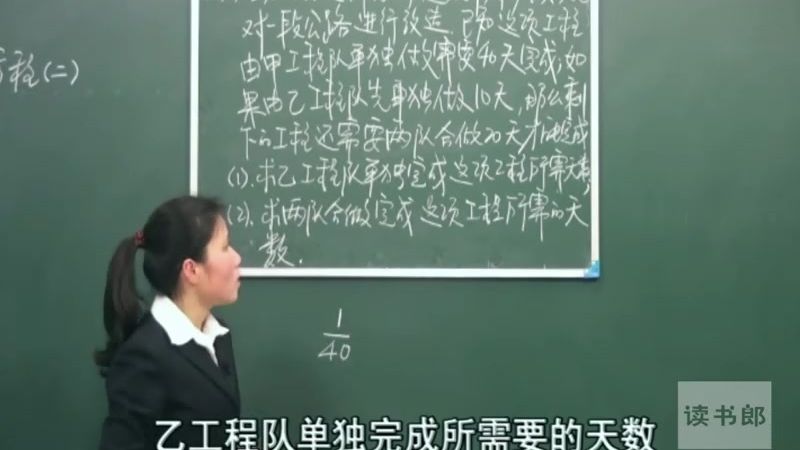 对一段公路进行改造.已知这项工程
由甲工程队单独做需要40天完成;如
果由乙工程队先单独做10天,那么剩
下的工程还需要两队合做20天才能完成
(1).求乙工程队单独完成这项工程所需天数;
程(二)
(2).求两队合做完成这项工程所需的天
数.
1
40
乙工程队单独完成所需要的天数
读书郎